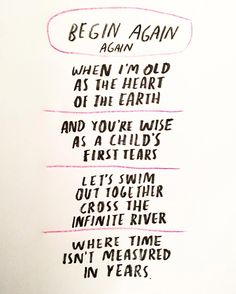 BEGIN AGAIN
AGAIN
WHEN I'M OLD
AS THE HEART
OF THE EARTH
AND YOU'RE WISE
AS A CHILD'S
FIRST TEARS
LET'S SWIM
OUT TOGETHER
CROSS THE
INFINITE RIVER
WHERE TIME
ISN'T MEASURED
IN YEARS.